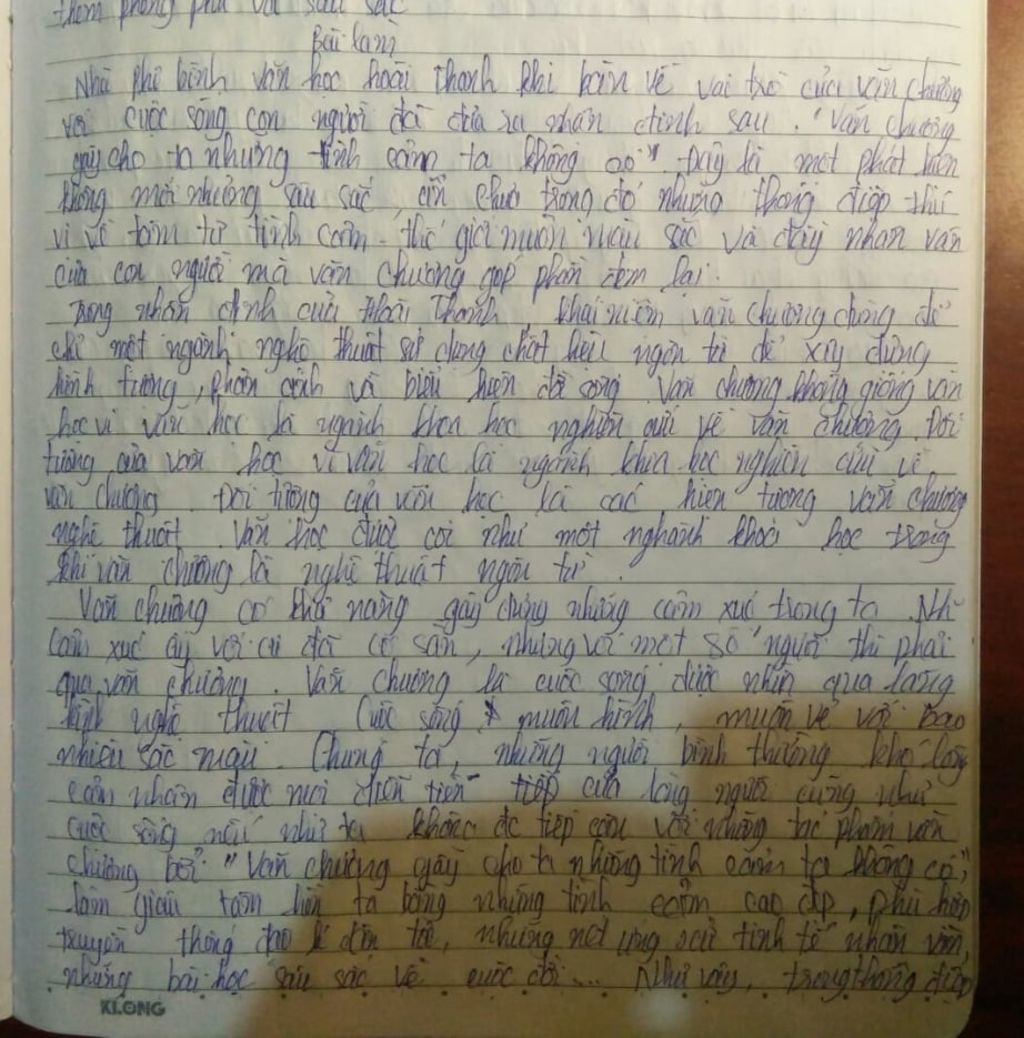 thêm phong phú và sâu sắc
Bài làm
Nhà phê bình văn học hoài Thanh khi bàn về vai trò của văn chương
với cuộc sống con người đã đưa ra nhân định sau. "Văn chương
gây cho ta những tình cảm ta không có" Đây là một phát hiện
không mới nhưng sâu sắc, ẩn chứa trong đó những thông điệp thú
vị về tâm tư tình cảm - thế giới muôn màu sắc và đầy nhân văn
của con người mà văn chương góp phần đem lại.
Trong nhân định của Hoài Thanh khái niệm văn chương dùng để
chỉ một ngành nghệ thuật sử dụng chất liệu ngôn từ để xây dựng
hình tượng, phản ánh và biểu hiện đời sống. Văn chương không giống văn
học vì văn học là ngành khoa học nghiên cứu về văn chương. Đối
tượng của văn học vì văn học là ngành khoa học nghiên cứu về
văn chương. Đối tượng của văn học là các hiện tượng văn chương
nghệ thuật. Văn học được coi như một nghành khoa học trong
khi văn chương là nghệ thuật ngôn từ.
Văn chương có khả năng gây dựng những cảm xúc trong ta. Nh
cảm xúc ấy với ai đã có sẵn, nhưng với một số người thì phải
qua văn chương. Văn chương là cuộc sống được nhìn qua lăng
kính nghệ thuật. Cuộc sống muôn hình, muôn vẻ với bao
nhiêu sắc màu. Chúng ta, những người bình thường khó lòng
cảm nhận được mọi diễn tiến tiếp của lòng người cũng như
cuộc sống nếu như ta không đc tiếp cận với những tác phẩm văn
chương bởi "Văn chương gây cho ta những tình cảm ta không có",
làm giàu tâm hồn ta bằng những tình cảm cao đẹp, phù hợp
truyền thống đạo lí dân tộc, những nét ứng xử tinh tế nhân văn,
những bài học sâu sắc về cuộc đời... Như vậy, trong thông điệp
KLONG